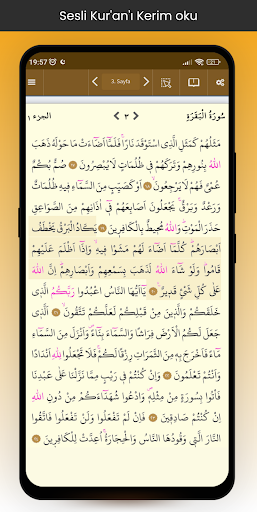 Sesli Kur'an'ı Kerim oku
19:57
3. Sayfa
سُورَةُ الْبَقَرَةِ
< ٣ >
الجزء ١
مَثَلُهُمْ كَمَثَلِ الَّذِي اسْتَوْقَدَ نَارًا فَلَمَّا أَضَاءَتْ مَا حَوْلَهُ ذَهَبَ
اللهُ بِنُورِهِمْ وَتَرَكَهُمْ فِي ظُلُمَاتٍ لَا يُبْصِرُونَ صُمٌّ بُكْمٌ
عُمْيٌ فَهُمْ لَا يَرْجِعُونَ أَوْ كَصَيِّبٍ مِنَ السَّمَاءِ فِيهِ ظُلُمَاتٌ
وَرَعْدٌ وَبَرْقٌ يَجْعَلُونَ أَصَابِعَهُمْ فِي آذَانِهِمْ مِنَ الصَّوَاعِقِ
حَذَرَ الْمَوْتِ وَاللهُ مُحِيطٌ بِالْكَافِرِينَ يَكَادُ الْبَرْقُ يَخْطَفُ
أَبْصَارَهُمْ كُلَّمَا أَضَاءَ لَهُمْ مَشَوْا فِيهِ وَإِذَا أَظْلَمَ عَلَيْهِمْ
قَامُوا وَلَوْ شَاءَ اللهُ لَذَهَبَ بِسَمْعِهِمْ وَأَبْصَارِهِمْ إِنَّ اللهَ
عَلَى كُلِّ شَيْءٍ قَدِيرٌ يَا أَيُّهَا النَّاسُ اعْبُدُوا رَبَّكُمُ الَّذِي
خَلَقَكُمْ وَالَّذِينَ مِنْ قَبْلِكُمْ لَعَلَّكُمْ تَتَّقُونَ الَّذِي
جَعَلَ لَكُمُ الْأَرْضَ فِرَاشًا وَالسَّمَاءَ بِنَاءً وَأَنْزَلَ مِنَ السَّمَاءِ
مَاءً فَأَخْرَجَ بِهِ مِنَ الثَّمَرَاتِ رِزْقًا لَكُمْ فَلَا تَجْعَلُوا لِلهِ أَنْدَادًا
وَأَنْتُمْ تَعْلَمُونَ وَإِنْ كُنْتُمْ فِي رَيْبٍ مِمَّا نَزَّلْنَا عَلَى عَبْدِنَا
فَأْتُوا بِسُورَةٍ مِنْ مِثْلِهِ وَادْعُوا شُهَدَاءَكُمْ مِنْ دُونِ اللهِ
إِنْ كُنْتُمْ صَادِقِينَ فَإِنْ لَمْ تَفْعَلُوا وَلَنْ تَفْعَلُوا فَاتَّقُوا
النَّارَ الَّتِي وَقُودُهَا النَّاسُ وَالْحِجَارَةُ أُعِدَّتْ لِلْكَافِرِينَ